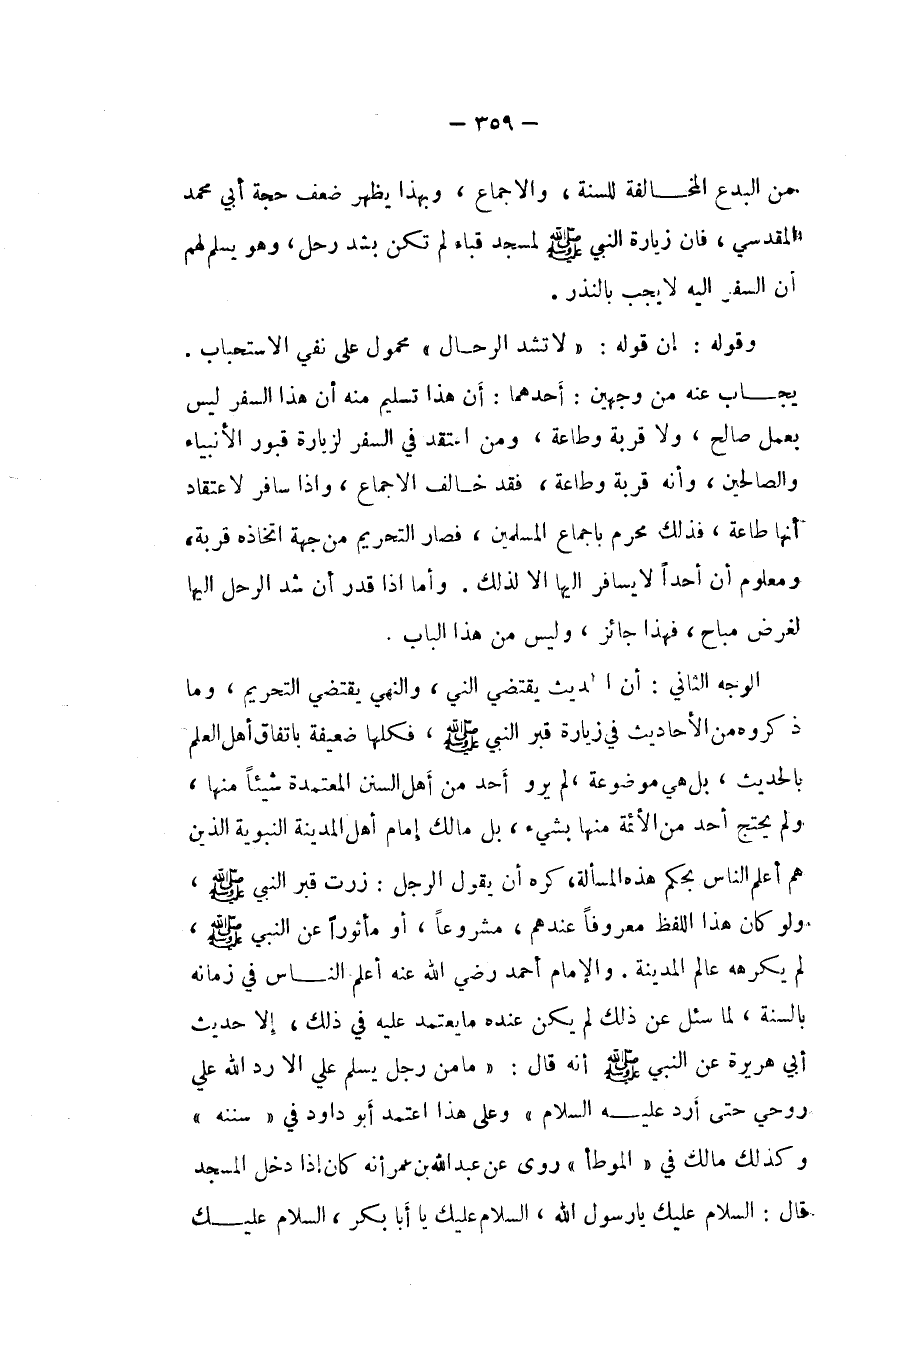 — ٣٥٩ —
من البدع المخالفة للسنة ، والاجماع ، وبهذا يظهر ضعف حجة أبي محمد
المقدسي ، فان زيارة النبي ﷺ لمسجد قباء لم تكن بشد رحل ، وهو يسلم لهم
أن السفر اليه لا يجب بالنذر .
وقوله : إن قوله : « لا تشد الرحال » محمول على نفي الاستحباب .
يجاب عنه من وجهين : أحدهما : أن هذا تسليم منه أن هذا السفر ليس
بعمل صالح ، ولا قربة وطاعة ، ومن اعتقد في السفر لزيارة قبور الأنبياء
والصالحين ، وأنه قربة وطاعة ، فقد خالف الاجماع ، واذا سافر لاعتقاد
أنها طاعة ، فذلك محرم باجماع المسلمين ، فصار التحريم من جهة اتخاذه قربة ،
ومعلوم أن أحداً لا يسافر اليها الا لذلك . وأما اذا قدر أن شد الرحل اليها
لغرض مباح ، فهذا جائز ، وليس من هذا الباب .
الوجه الثاني : أن الحديث يقتضي النهي ، والنهي يقتضي التحريم ، وما
ذكروه من الأحاديث في زيارة قبر النبي ﷺ ، فكلها ضعيفة باتفاق أهل العلم
بالحديث ، بل هي موضوعة ، لم يرو أحد من أهل السنن المعتمدة شيئاً منها ،
ولم يحتج أحد من الأئمة منها بشيء ، بل مالك إمام أهل المدينة النبوية الذين
هم أعلم الناس بحكم هذه المسألة ، كره أن يقول الرجل : زرت قبر النبي ﷺ ،
ولو كان هذا اللفظ معروفاً عندهم ، مشروعاً ، أو مأثوراً عن النبي ﷺ ،
لم يكرهه عالم المدينة . والإمام أحمد رضي الله عنه أعلم الناس في زمانه
بالسنة ، لما سئل عن ذلك لم يكن عنده ما يعتمد عليه في ذلك ، إلا حديث
أبي هريرة عن النبي ﷺ أنه قال : « ما من رجل يسلم علي الا رد الله علي
روحي حتى أرد عليه السلام » وعلى هذا اعتمد أبو داود في « سننه »
وكذلك مالك في « الموطأ » روى عن عبد الله بن عمر أنه كان إذا دخل المسجد
قال : السلام عليك يا رسول الله ، السلام عليك يا أبا بكر ، السلام عليك